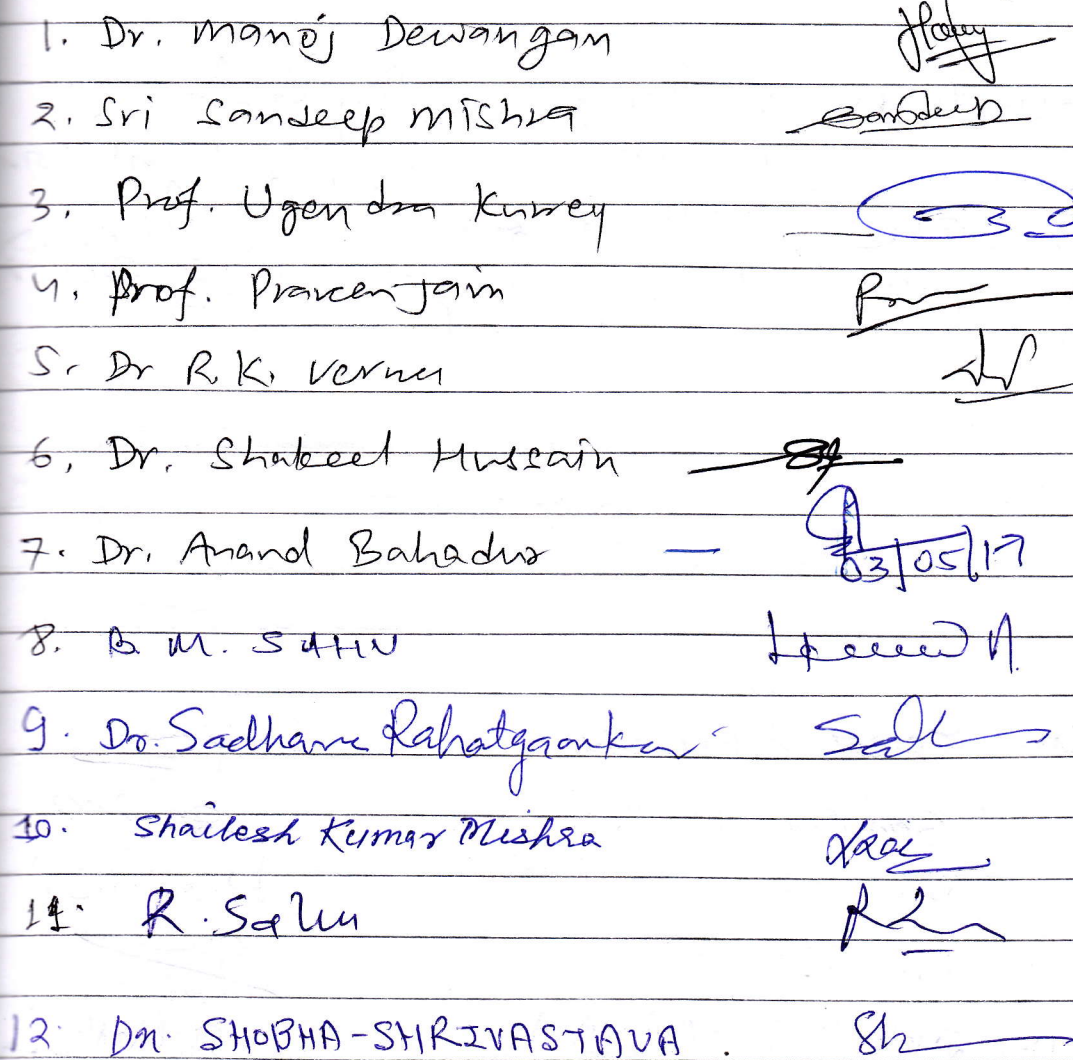 1. Dr. Manoj Dewangan
2. Sri Sandeep Mishra Sandeep
3. Prof. Ugendra Kurrey
4. Prof. Praveen Jain
5. Dr R.K. Verma
6. Dr. Shakeel Hussain
7. Dr. Anand Bahadur — 03/05/17
8. B. M. SAHU
9. Dr. Sadhana Rahatgaonkar
10. Shailesh Kumar Mishra
11. R. Sahu
12. Dr. SHOBHA-SHRIVASTAVA . Sh